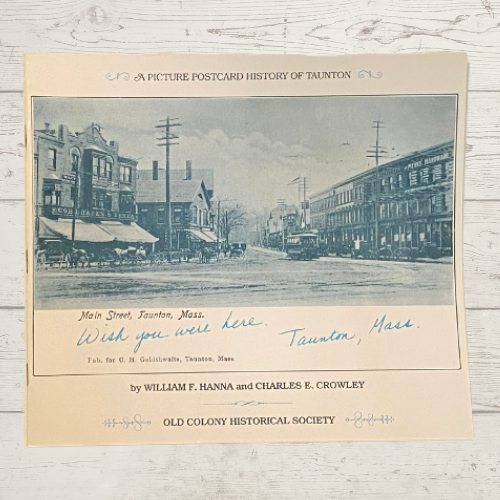 A PICTURE POSTCARD HISTORY OF TAUNTON
Main Street, Taunton, Mass.
Wish you were here.
Taunton, Mass.
Pub. for C. H. Goldthwaite, Taunton, Mass.
by WILLIAM F. HANNA and CHARLES E. CROWLEY
OLD COLONY HISTORICAL SOCIETY